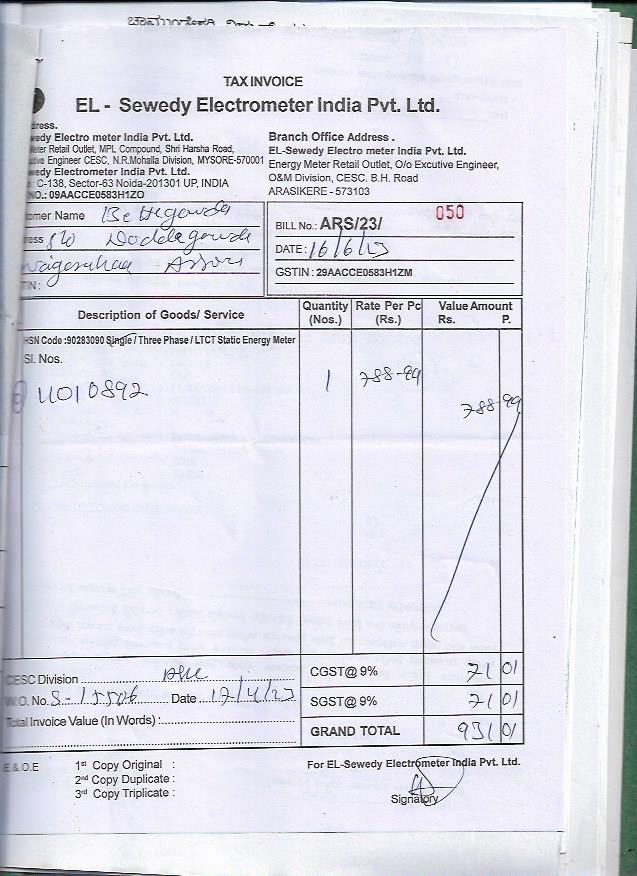 TAX INVOICE
EL - Sewedy Electrometer India Pvt. Ltd.
dress.
wedy Electro meter India Pvt. Ltd.
eter Retail Outlet, MPL Compound, Shri Harsha Road,
tive Engineer CESC, N.R.Mohalla Division, MYSORE-570001
wedy Electrometer India Pvt. Ltd.
: C-138, Sector-63 Noida-201301 UP, INDIA
NO.: 09AACCE0583H1ZO
Branch Office Address .
EL-Sewedy Electro meter India Pvt. Ltd.
Energy Meter Retail Outlet, O/o Excutive Engineer,
O&M Division, CESC. B.H. Road
ARASIKERE - 573103
omer Name Bettegowda
ress S/o Doddegowda
TIN :
BILL No.: ARS/23/ 050
DATE : 16/6/23
GSTIN : 29AACCE0583H1ZM
Description of Goods/ Service
Quantity (Nos.)
Rate Per Pc (Rs.)
Value Amount
Rs. P.
HSN Code :90283090 Single / Three Phase / LTCT Static Energy Meter
Sl. Nos.
U010892
1
788-99
788-99
CESC Division
W.O. No. S-15506 Date 17/4/23
Total Invoice Value (In Words) :
CGST@ 9% 71 01
SGST@ 9% 71 01
GRAND TOTAL 931 01
E.& O.E
1st Copy Original :
2nd Copy Duplicate :
3rd Copy Triplicate :
For EL-Sewedy Electrometer India Pvt. Ltd.
Signatory